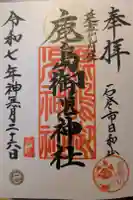 奉拝
石巻市日和山
鹿島御児神社
令和七年神無月二十六日